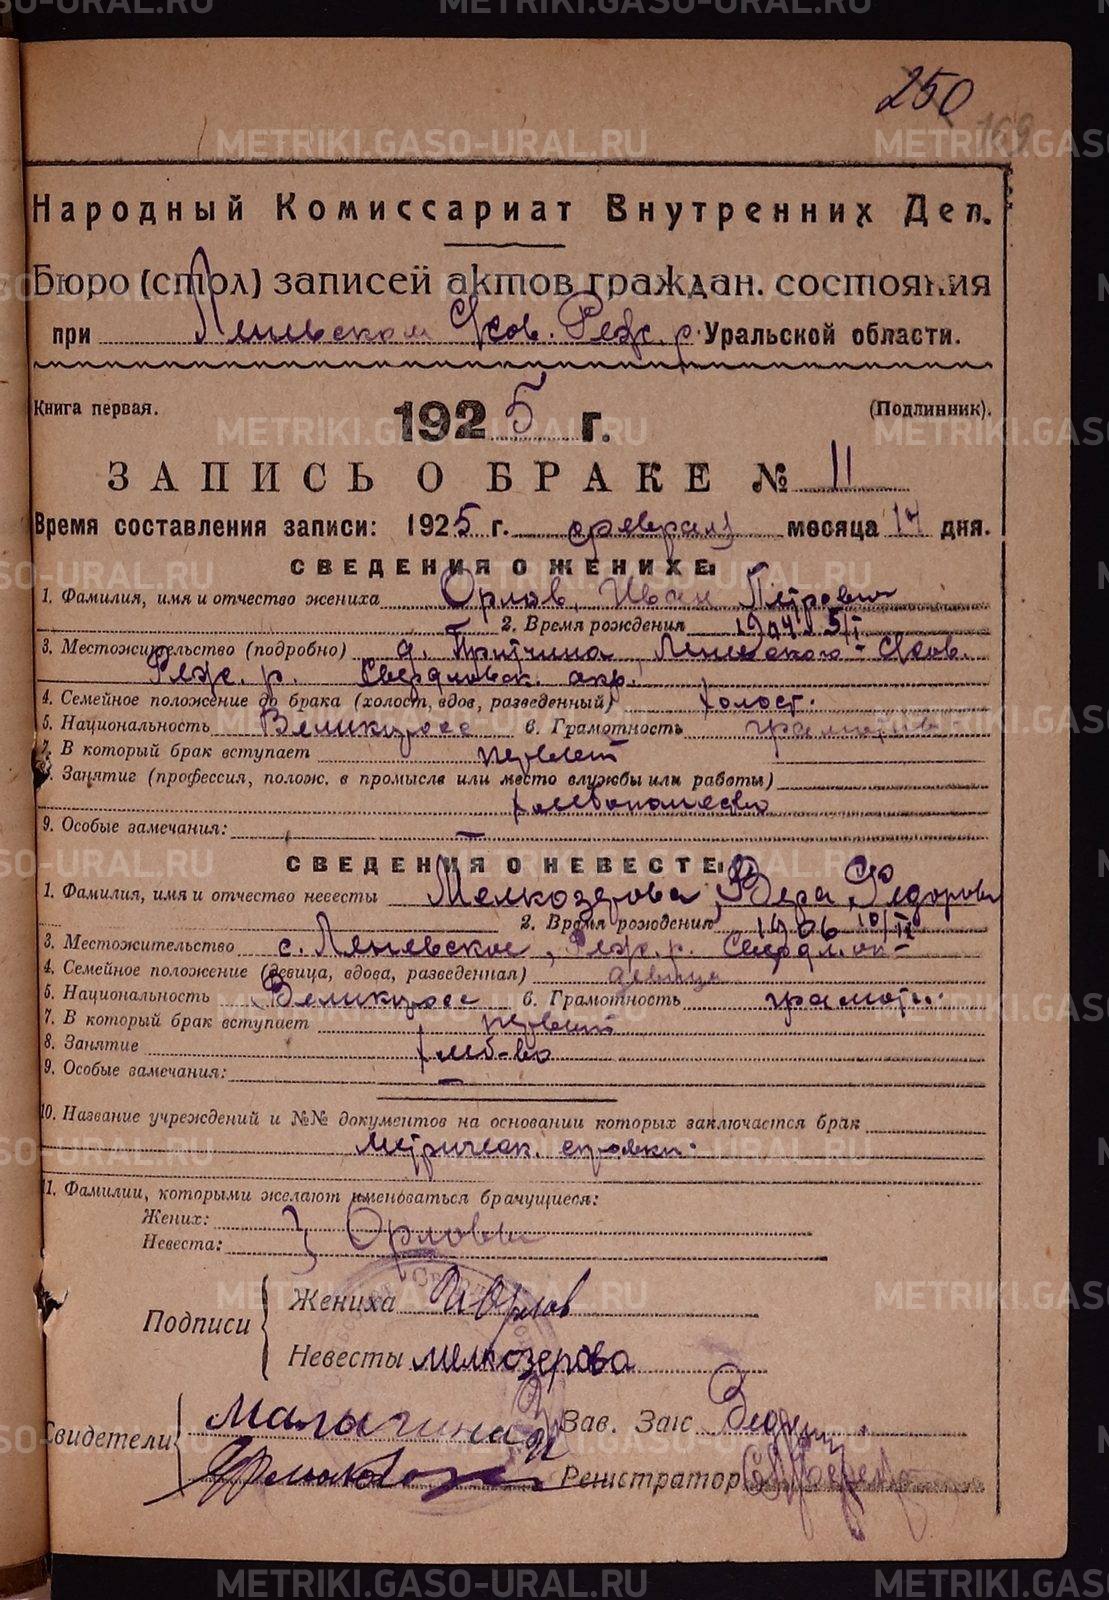 250
169
Народный Комиссариат Внутренних Дел.
Бюро (стол) записей актов граждан. состояния
при Леневском С/сов. Реж. р. Уральской области.
Книга первая. (Подлинник).
1925 г.
ЗАПИСЬ О БРАКЕ № 11
Время составления записи: 1925 г. февраля месяца 14 дня.
СВЕДЕНИЯ О ЖЕНИХЕ:
1. Фамилия, имя и отчество жениха Орлов, Иван Петрович
2. Время рождения 1904 5/I
3. Местожительство (подробно) д. Притчина, Леневского С/сов.
Реж. р. Свердловск. окр.
4. Семейное положение до брака (холост, вдов, разведенный) холост.
5. Национальность Великоросс 6. Грамотность грамотн.
7. В который брак вступает первый
8. Занятие (профессия, полож. в промысле или место влужбы или работы)
хлебопашество
9. Особые замечания: —
СВЕДЕНИЯ О НЕВЕСТЕ:
1. Фамилия, имя и отчество невесты Мелкозерова, Вера Федоровн
2. Время рождения 1906 10/II
3. Местожительство с. Леневское, Реж. р. Свердл. ок-
4. Семейное положение (девица, вдова, разведенная) девица
5. Национальность Великоросс 6. Грамотность грамотн.
7. В который брак вступает первый
8. Занятие хлеб-во
9. Особые замечания: —
10. Название учреждений и №№ документов на основании которых заключается брак
Метрическ. справки.
11. Фамилии, которыми желают именоваться брачущиеся:
Жених:
Невеста: } Орловы
Подписи { Жениха И Орлов
Невесты Мелкозерова
Свидетели { Малыгина Зав. Загс
Регистратор
METRIKI.GASO-URAL.RU